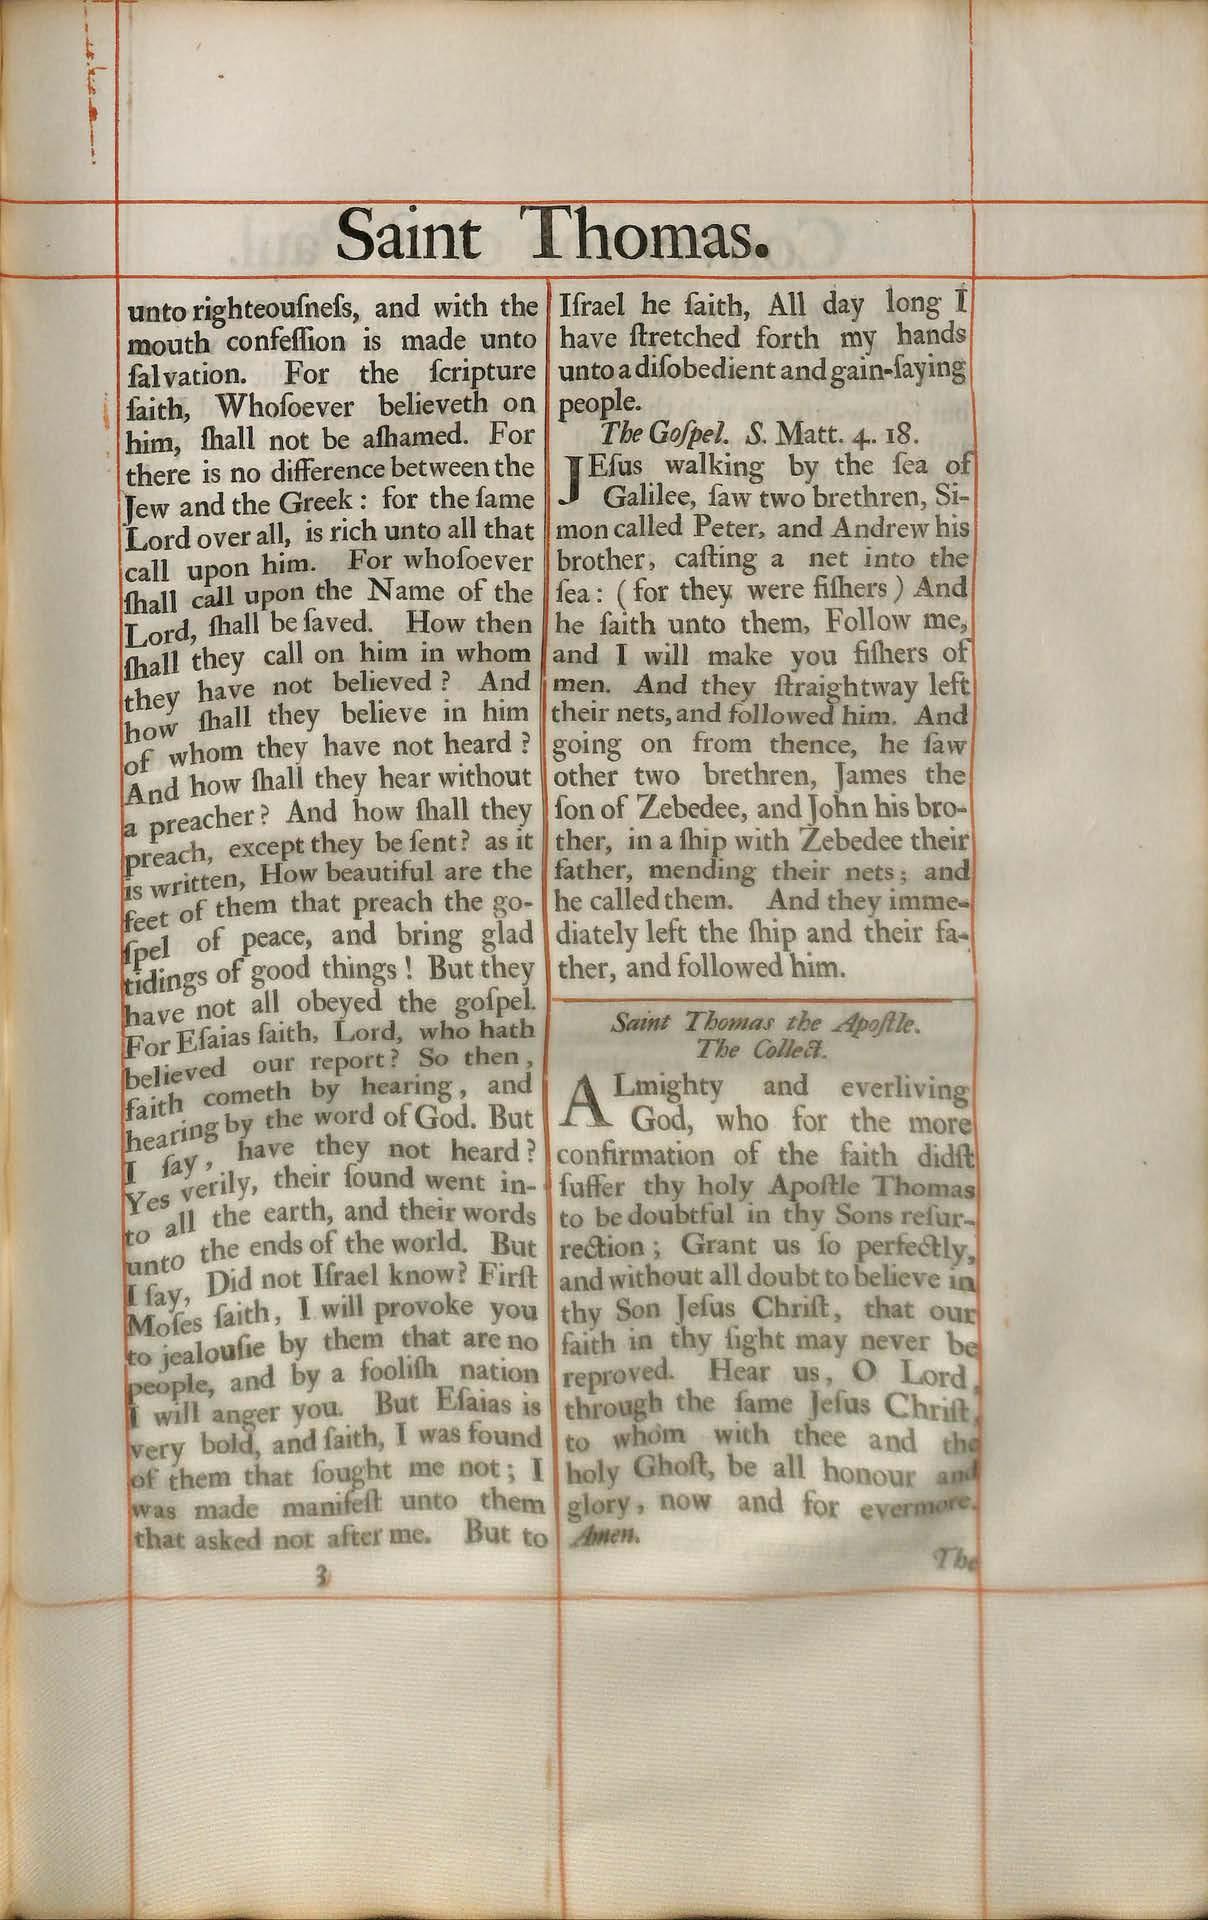 Saint Thomas.
unto righteouſneſs, and with the
mouth confeſſion is made unto
ſalvation. For the ſcripture
ſaith, Whoſoever believeth on
him, ſhall not be aſhamed. For
there is no difference between the
Jew and the Greek: for the ſame
Lord over all, is rich unto all that
call upon him. For whoſoever
ſhall call upon the Name of the
Lord, ſhall be ſaved. How then
ſhall they call on him in whom
they have not believed? And
how ſhall they believe in him
of whom they have not heard?
And how ſhall they hear without
a preacher? And how ſhall they
preach, except they be ſent? as it
is written, How beautiful are the
feet of them that preach the go-
ſpel of peace, and bring glad
tidings of good things! But they
have not all obeyed the goſpel.
For Eſaias ſaith, Lord, who hath
believed our report? So then,
faith cometh by hearing, and
hearing by the word of God. But
I ſay, have they not heard?
Yes verily, their ſound went in-
to all the earth, and their words
unto the ends of the world. But
I ſay, Did not Iſrael know? Firſt
Moſes ſaith, I will provoke you
to jealouſie by them that are no
people, and by a fooliſh nation
I will anger you. But Eſaias is
very bold, and ſaith, I was found
of them that ſought me not; I
was made manifeſt unto them
that asked not after me. But to
3
Iſrael he ſaith, All day long I
have ſtretched forth my hands
unto a diſobedient and gain-ſaying
people.
The Goſpel. S. Matt. 4. 18.
JEſus walking by the ſea of
Galilee, ſaw two brethren, Si-
mon called Peter, and Andrew his
brother, caſting a net into the
ſea: (for they were fiſhers) And
he ſaith unto them, Follow me,
and I will make you fiſhers of
men. And they ſtraightway left
their nets, and followed him. And
going on from thence, he ſaw
other two brethren, James the
ſon of Zebedee, and John his bro-
ther, in a ſhip with Zebedee their
father, mending their nets; and
he called them. And they imme-
diately left the ſhip and their fa-
ther, and followed him.
Saint Thomas the Apoſtle.
The Collect.
ALmighty and everliving
God, who for the more
confirmation of the faith didſt
ſuffer thy holy Apoſtle Thomas
to be doubtful in thy Sons reſur-
rection; Grant us ſo perfectly,
and without all doubt to believe in
thy Son Jeſus Chriſt, that our
faith in thy ſight may never be
reproved. Hear us, O Lord,
through the ſame Jeſus Chriſt,
to whom with thee and the
holy Ghoſt, be all honour and
glory, now and for evermore.
Amen.
The